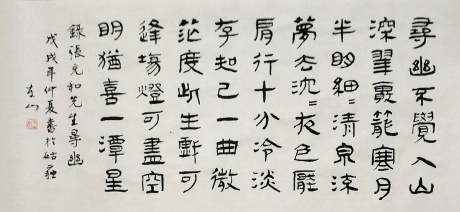 尋幽不覺入山
深翠霧籠寒月
半明細〻清泉流
夢去沈〻夜色壓
肩行十分冷淡
存知己一曲微
茫度此生戲可
逢場燈可盡空
明猶喜一潭星
錄張充和先生尋幽
戊戌年仲夏書於姑蘇